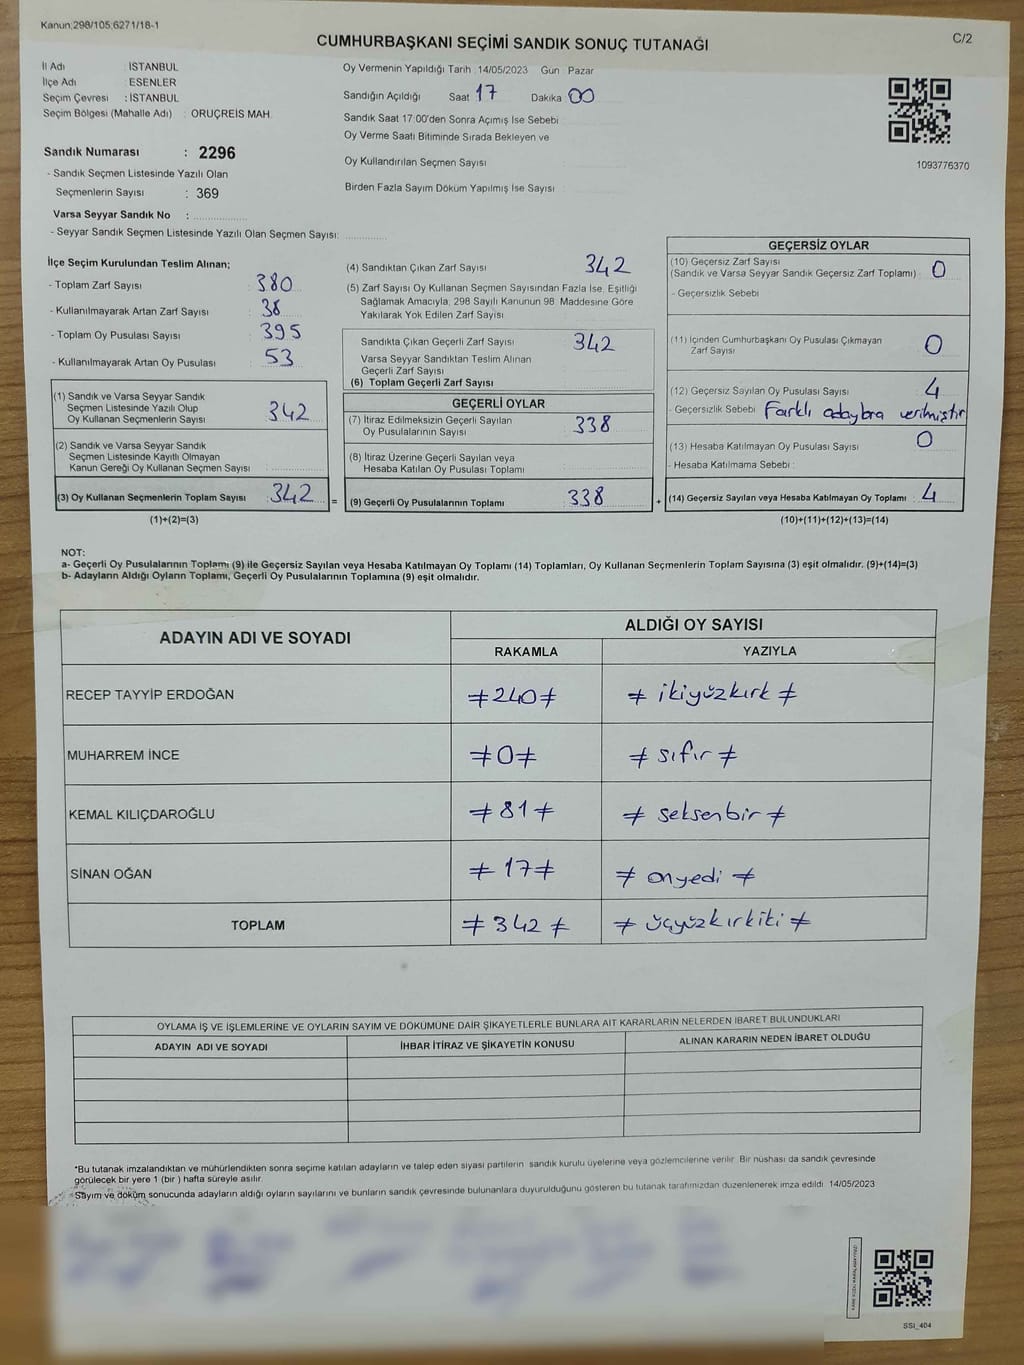 Kanun;298/105;6271/18-1
C/2
CUMHURBAŞKANI SEÇİMİ SANDIK SONUÇ TUTANAĞI
İl Adı : İSTANBUL
İlçe Adı : ESENLER
Seçim Çevresi : İSTANBUL
Seçim Bölgesi (Mahalle Adı) : ORUÇREİS MAH.
Sandık Numarası : 2296
- Sandık Seçmen Listesinde Yazılı Olan
Seçmenlerin Sayısı : 369
Varsa Seyyar Sandık No :
- Seyyar Sandık Seçmen Listesinde Yazılı Olan Seçmen Sayısı:
Oy Vermenin Yapıldığı Tarih 14/05/2023 Gün Pazar
Sandığın Açıldığı Saat 17 Dakika 00
Sandık Saat 17:00'den Sonra Açımış İse Sebebi
Oy Verme Saati Bitiminde Sırada Bekleyen ve
Oy Kullandırılan Seçmen Sayısı
Birden Fazla Sayım Döküm Yapılmış İse Sayısı :
1093776370
İlçe Seçim Kurulundan Teslim Alınan;
- Toplam Zarf Sayısı : 380
- Kullanılmayarak Artan Zarf Sayısı : 38
- Toplam Oy Pusulası Sayısı : 395
- Kullanılmayarak Artan Oy Pusulası : 53
(1) Sandık ve Varsa Seyyar Sandık
Seçmen Listesinde Yazılı Olup
Oy Kullanan Seçmenlerin Sayısı : 342
(2) Sandık ve Varsa Seyyar Sandık
Seçmen Listesinde Kayıtlı Olmayan
Kanun Gereği Oy Kullanan Seçmen Sayısı :
(3) Oy Kullanan Seçmenlerin Toplam Sayısı : 342 =
(1)+(2)=(3)
(4) Sandıktan Çıkan Zarf Sayısı 342
(5) Zarf Sayısı Oy Kullanan Seçmen Sayısından Fazla İse, Eşitliği
Sağlamak Amacıyla, 298 Sayılı Kanunun 98. Maddesine Göre
Yakılarak Yok Edilen Zarf Sayısı
Sandıkta Çıkan Geçerli Zarf Sayısı 342
Varsa Seyyar Sandıktan Teslim Alınan
Geçerli Zarf Sayısı
(6) Toplam Geçerli Zarf Sayısı
GEÇERLİ OYLAR
(7) İtiraz Edilmeksizin Geçerli Sayılan
Oy Pusulalarının Sayısı 338
(8) İtiraz Üzerine Geçerli Sayılan veya
Hesaba Katılan Oy Pusulası Toplamı
(9) Geçerli Oy Pusulalarının Toplamı 338 +
GEÇERSİZ OYLAR
(10) Geçersiz Zarf Sayısı
(Sandık ve Varsa Seyyar Sandık Geçersiz Zarf Toplamı) : 0
- Geçersizlik Sebebi
(11) İçinden Cumhurbaşkanı Oy Pusulası Çıkmayan
Zarf Sayısı 0
(12) Geçersiz Sayılan Oy Pusulası Sayısı 4
- Geçersizlik Sebebi Farklı adaylara verilmiştir
(13) Hesaba Katılmayan Oy Pusulası Sayısı 0
- Hesaba Katılmama Sebebi :
(14) Geçersiz Sayılan veya Hesaba Katılmayan Oy Toplamı : 4
(10)+(11)+(12)+(13)=(14)
NOT:
a- Geçerli Oy Pusulalarının Toplamı (9) ile Geçersiz Sayılan veya Hesaba Katılmayan Oy Toplamı (14) Toplamları, Oy Kullanan Seçmenlerin Toplam Sayısına (3) eşit olmalıdır. (9)+(14)=(3)
b- Adayların Aldığı Oyların Toplamı, Geçerli Oy Pusulalarının Toplamına (9) eşit olmalıdır.
ADAYIN ADI VE SOYADI
ALDIĞI OY SAYISI
RAKAMLA YAZIYLA
RECEP TAYYİP ERDOĞAN ≠240≠ ≠ ikiyüzkırk ≠
MUHARREM İNCE ≠0≠ ≠ sıfır ≠
KEMAL KILIÇDAROĞLU ≠81≠ ≠ seksenbir ≠
SİNAN OĞAN ≠17≠ ≠ onyedi ≠
TOPLAM ≠342≠ ≠ üçyüzkırkiki ≠
OYLAMA İŞ VE İŞLEMLERİNE VE OYLARIN SAYIM VE DÖKÜMÜNE DAİR ŞİKAYETLERLE BUNLARA AİT KARARLARIN NELERDEN İBARET BULUNDUKLARI
ADAYIN ADI VE SOYADI İHBAR İTİRAZ VE ŞİKAYETİN KONUSU ALINAN KARARIN NEDEN İBARET OLDUĞU
*Bu tutanak imzalandıktan ve mühürlendikten sonra seçime katılan adayların ve talep eden siyasi partilerin sandık kurulu üyelerine veya gözlemcilerine verilir. Bir nüshası da sandık çevresinde
görülecek bir yere 1 (bir ) hafta süreyle asılır.
*Sayım ve döküm sonucunda adayların aldığı oyların sayılarını ve bunların sandık çevresinde bulunanlara duyurulduğunu gösteren bu tutanak tarafımızdan düzenlenerek imza edildi. 14/05/2023
SSI_404